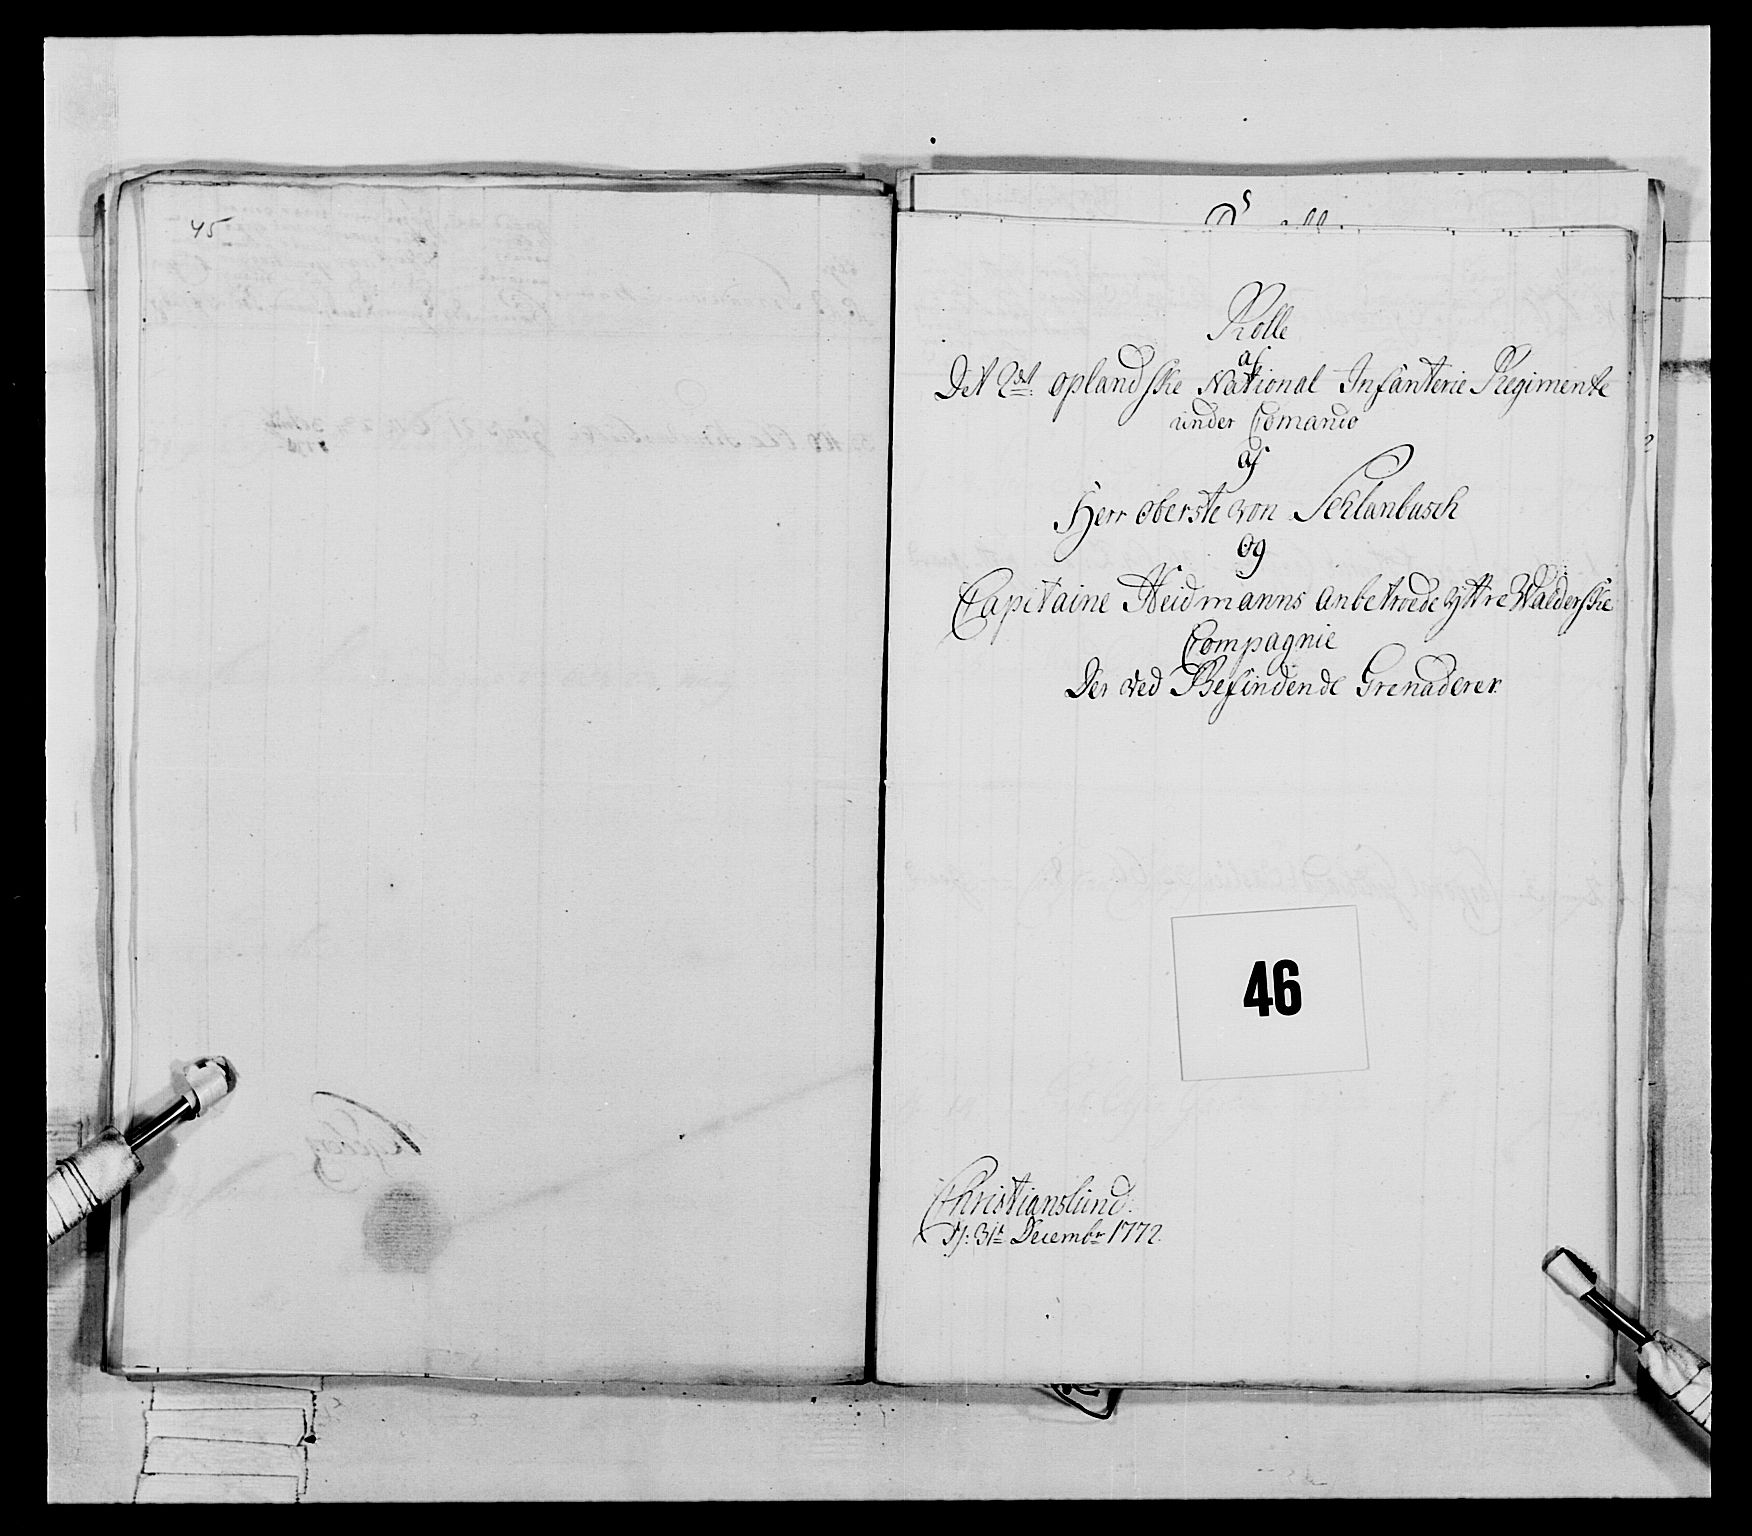 45
Rolle
af
Det 2det oplandske National Infanterie Regimente
under Comando
af
Herr Oberste von Schlanbusch
Og
Capitaine Heidmanns Anbetroede yttre Walderske
Compagnie
Der ved Befindende Grenaderer
46
Christianslund
D: 31te Decembr 1772.